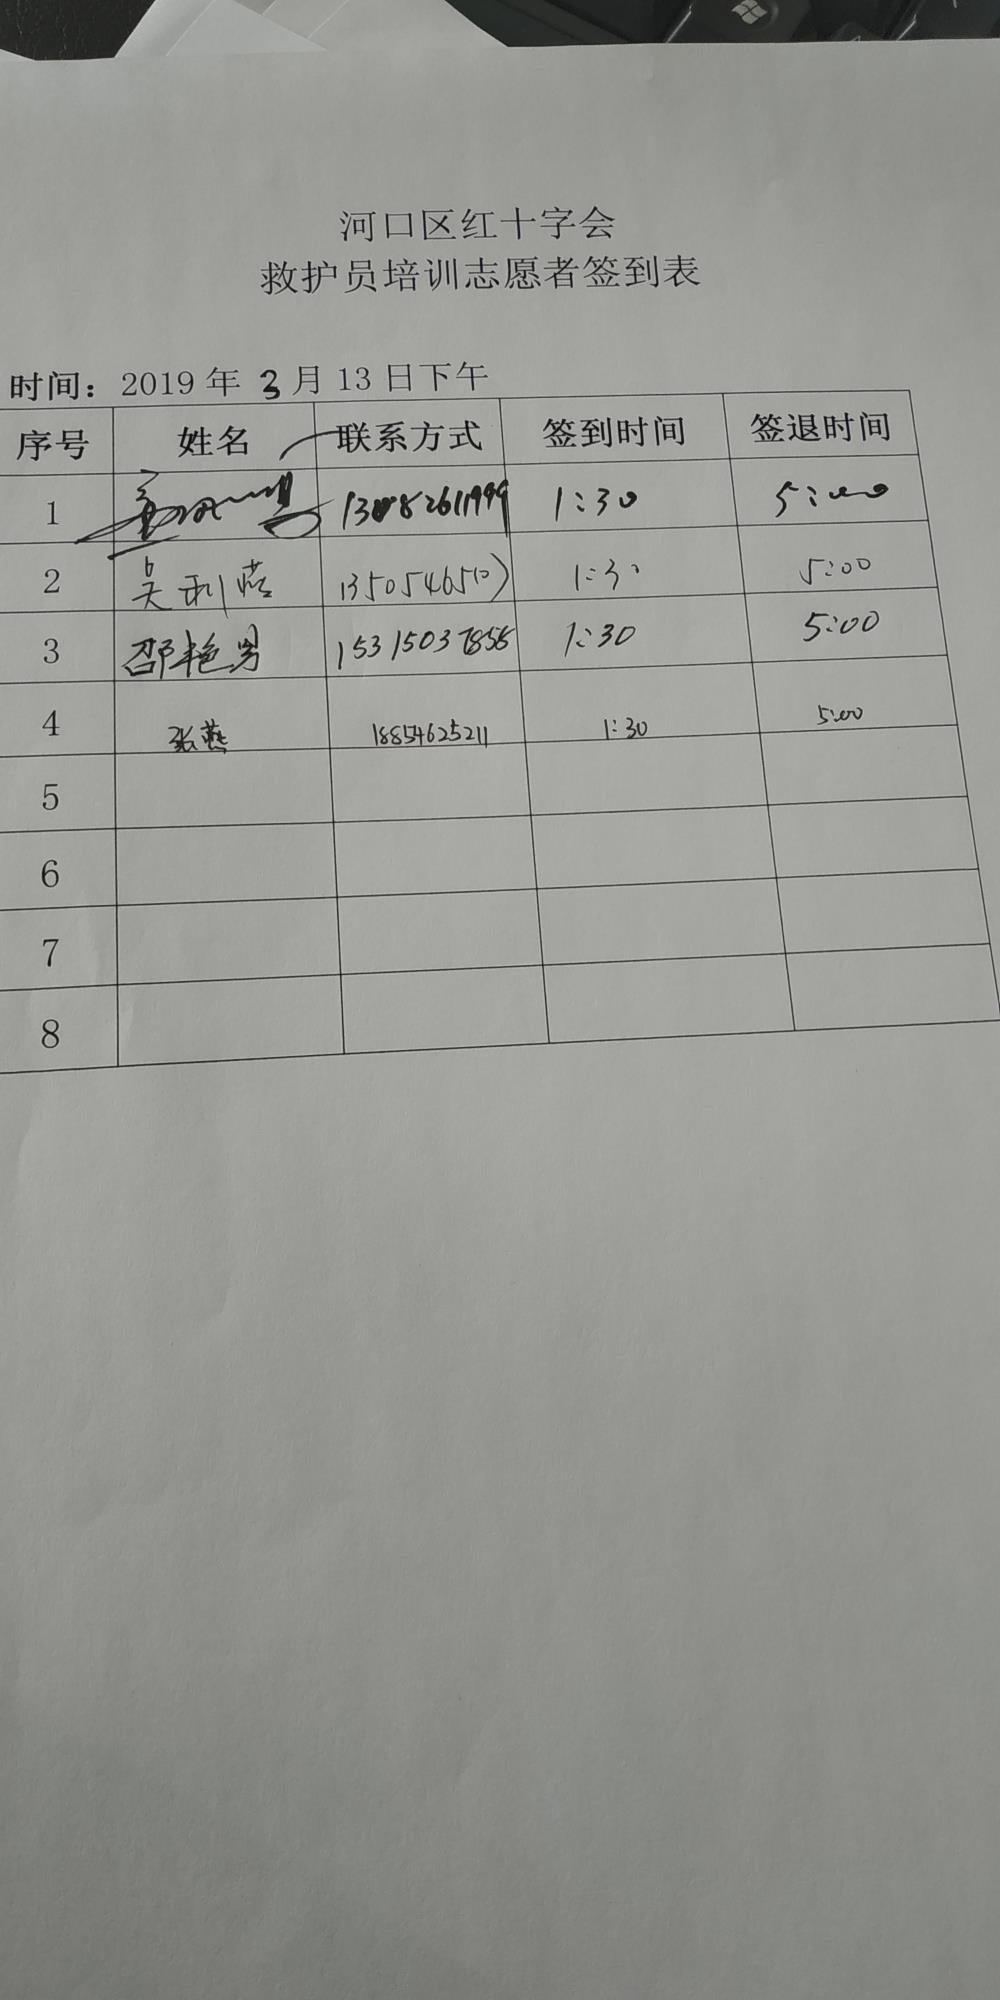 河口区红十字会
救护员培训志愿者签到表
时间：2019 年 3 月 13 日下午
序号 姓名 联系方式 签到时间 签退时间
1 1:30 5:00
2 吴利 1:30 5:00
3 邵艳男 15315037856 1:30 5:00
4 张燕 18854625211 1:30 5:00
5
6
7
8